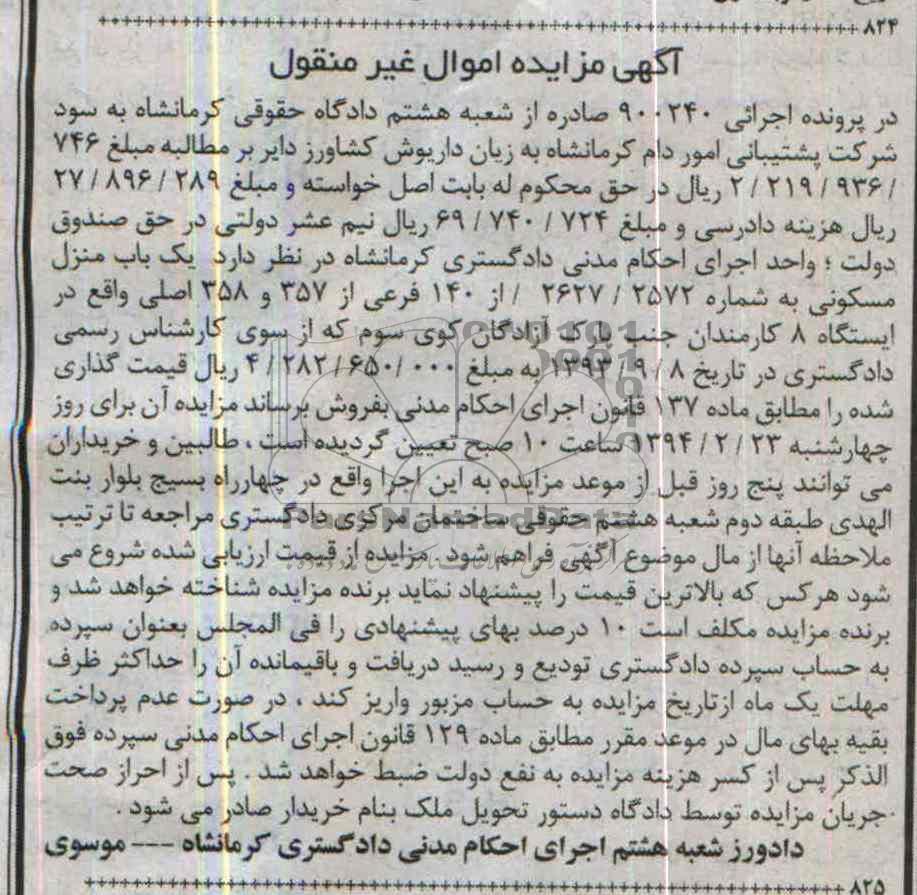 ۸۲۴
آگهی مزایده اموال غیر منقول
در پرونده اجرائی ۹۰۰۲۴۰ صادره از شعبه هشتم دادگاه حقوقی کرمانشاه به سود
شرکت پشتیبانی امور دام کرمانشاه به زیان داریوش کشاورز دایر بر مطالبه مبلغ ۷۴۶
/ ۹۳۶ / ۲۱۹ / ۲ ریال در حق محکوم له بابت اصل خواسته و مبلغ ۲۸۹ / ۸۹۶ / ۲۷
ریال هزینه دادرسی و مبلغ ۷۲۴ / ۷۴۰ / ۶۹ ریال نیم عشر دولتی در حق صندوق
دولت ؛ واحد اجرای احکام مدنی دادگستری کرمانشاه در نظر دارد یک باب منزل
مسکونی به شماره ۲۵۷۲ / ۲۶۲۷ / از ۱۴۰ فرعی از ۳۵۷ و ۳۵۸ اصلی واقع در
ایستگاه ۸ کارمندان جنب پارک آزادگان کوی سوم که از سوی کارشناس رسمی
دادگستری در تاریخ ۸ / ۹ / ۱۳۹۳ به مبلغ ۰۰۰ / ۶۵۰ / ۲۸۲ / ۴ ریال قیمت گذاری
شده را مطابق ماده ۱۳۷ قانون اجرای احکام مدنی بفروش برساند مزایده آن برای روز
چهارشنبه ۲۳ / ۲ / ۱۳۹۴ ساعت ۱۰ صبح تعیین گردیده است ، طالبین و خریداران
می توانند پنج روز قبل از موعد مزایده به این اجرا واقع در چهارراه بسیج بلوار بنت
الهدی طبقه دوم شعبه هشتم حقوقی ساختمان مرکزی دادگستری مراجعه تا ترتیب
ملاحظه آنها از مال موضوع آگهی فراهم شود . مزایده از قیمت ارزیابی شده شروع می
شود هرکس که بالاترین قیمت را پیشنهاد نماید برنده مزایده شناخته خواهد شد و
برنده مزایده مکلف است ۱۰ درصد بهای پیشنهادی را فی المجلس بعنوان سپرده
به حساب سپرده دادگستری تودیع و رسید دریافت و باقیمانده آن را حداکثر ظرف
مهلت یک ماه ازتاریخ مزایده به حساب مزبور واریز کند ، در صورت عدم پرداخت
بقیه بهای مال در موعد مقرر مطابق ماده ۱۲۹ قانون اجرای احکام مدنی سپرده فوق
الذکر پس از کسر هزینه مزایده به نفع دولت ضبط خواهد شد . پس از احراز صحت
جریان مزایده توسط دادگاه دستور تحویل ملک بنام خریدار صادر می شود .
دادورز شعبه هشتم اجرای احکام مدنی دادگستری کرمانشاه --- موسوی
۸۲۵